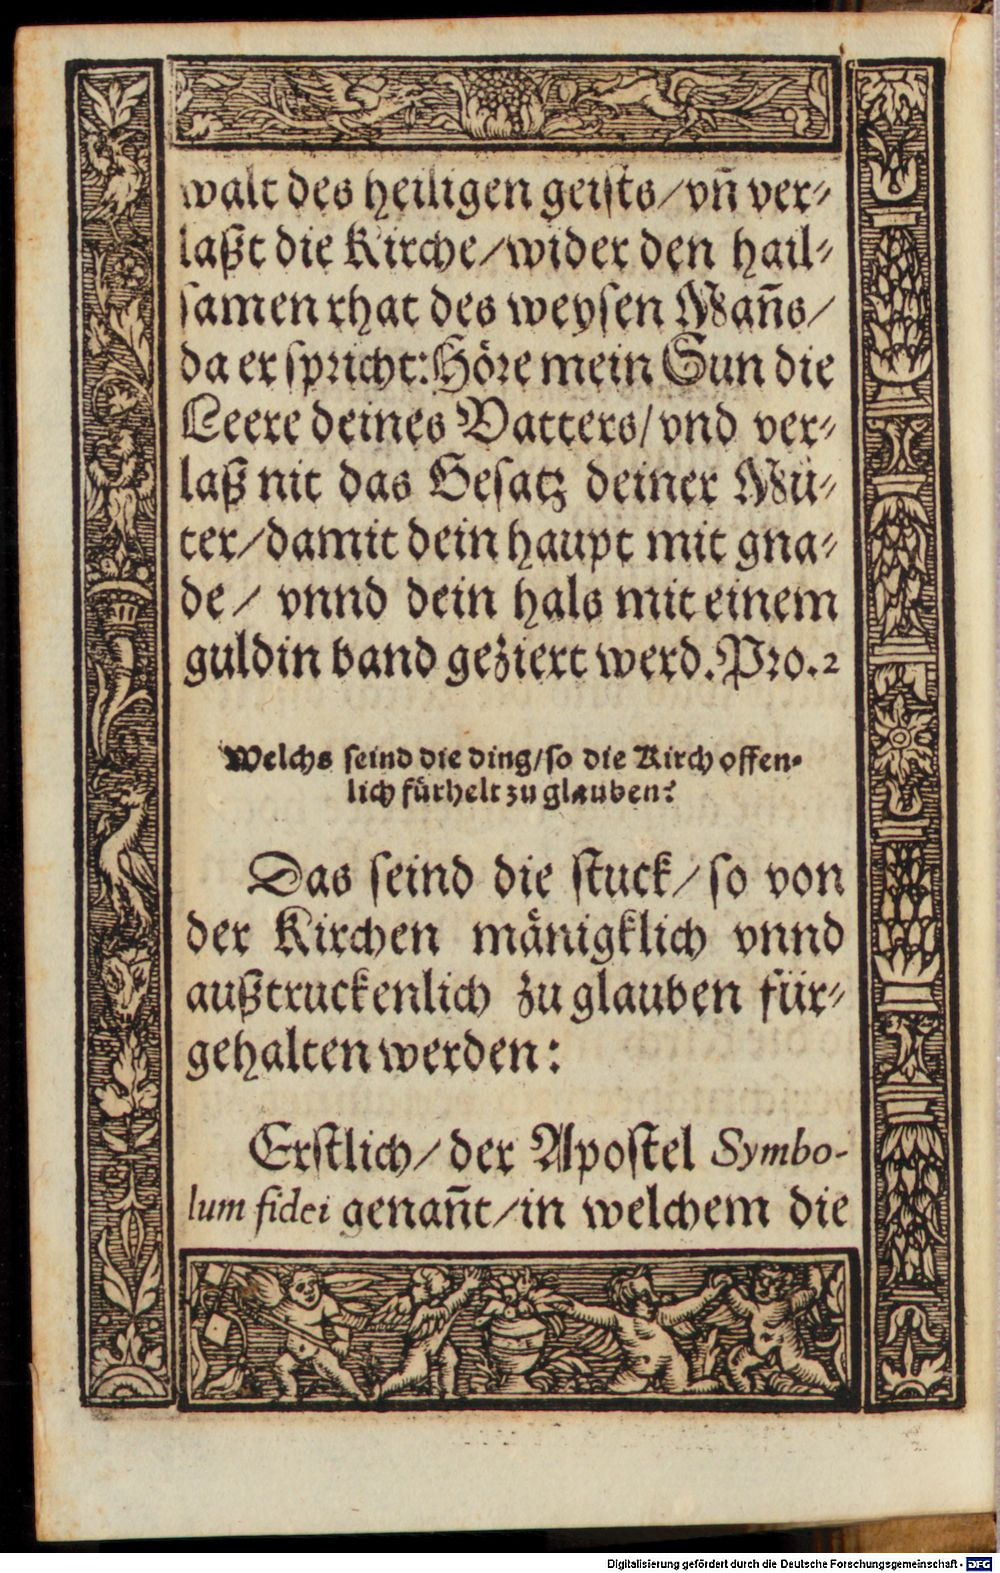 walt des heiligen geists/vn̄ ver⸗
laßt die Kirche/wider den hail⸗
samen rhat des weysen Man̄s/
da er spricht: Höre mein Sun die
Leere deines Vatters/vnd ver⸗
laß nit das Gesatz deiner Mů⸗
ter/damit dein haupt mit gna⸗
de/ vnnd dein hals mit einem
guldin band geziert werd. Pro. 2
Welchs seind die ding/so die Kirch offen⸗
lich fürhelt zu glauben?
Das seind die stuck/so von
der Kirchen mänigklich vnnd
außtruckenlich zu glauben für⸗
gehalten werden:
Erstlich/der Apostel Symbo-
lum fidei genan̄t/in welchem die
Digitalisierung gefördert durch die Deutsche Forschungsgemeinschaft - DFG